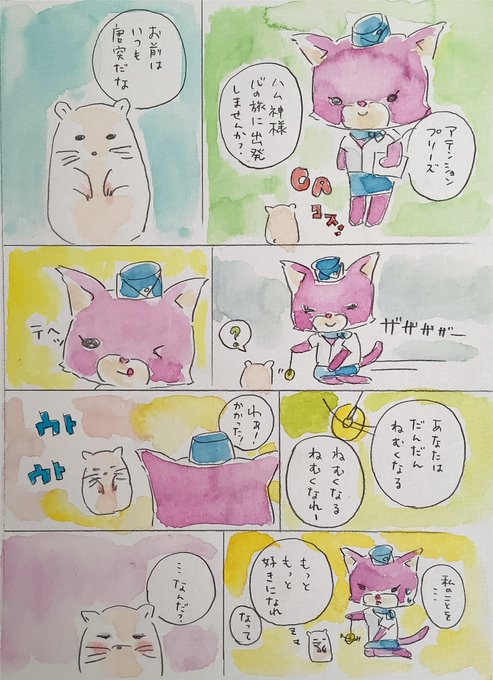 アテンション
プリーズ
ハム神様
心の旅に出発
しませんか?
CA
お前は
いつも
唐突だな
ザザザザー
?
テヘッ
あなたは
だんだん
ねむくなる
ねむくなる
ねむくなれー
わぁ!
かかった!
ウト
ウト
私のことを
…
もっと
もっと
好きになれ
なって
…なんだ?